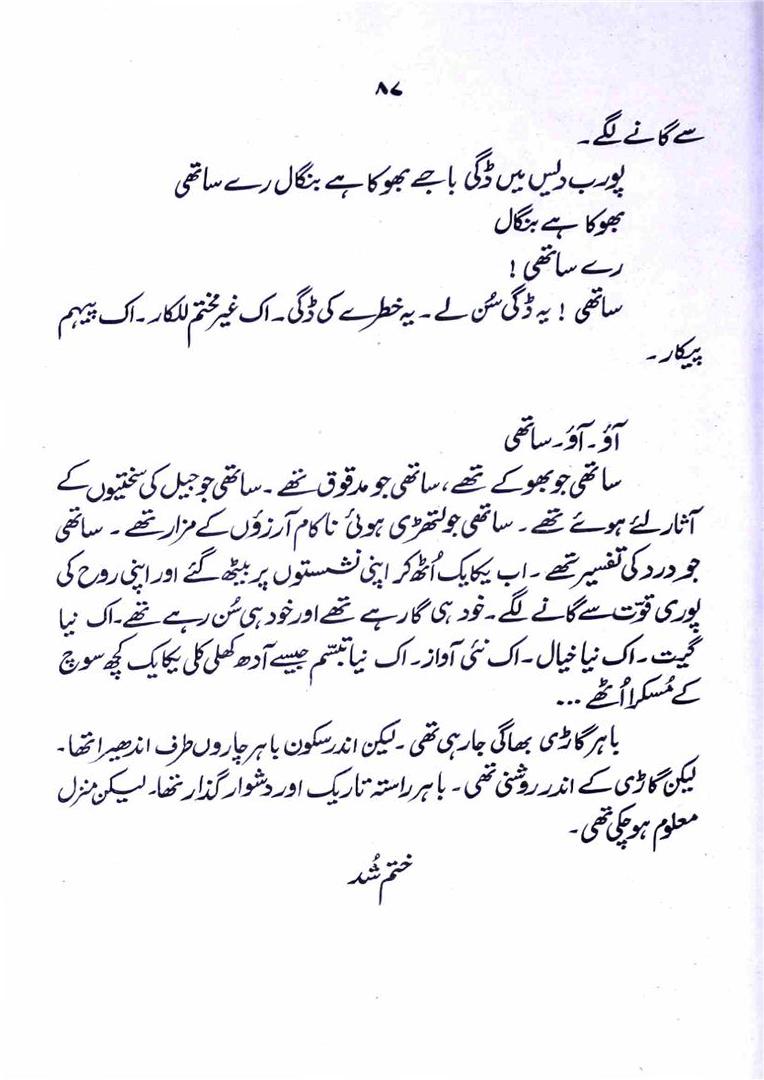 ۸۷
سے گانے لگے۔
پورب دلیس میں ڈگی باجے بھوکا ہے بنگال رے ساتھی
بھوکا ہے بنگال
رے ساتھی !
ساتھی ! یہ ڈگی سُن لے۔ یہ خطرے کی ڈگی۔ اک غیر مختم للکار۔ اک پیہم
پیکار۔
آؤ۔ آؤ۔ ساتھی
ساتھی جو بھوکے تھے، ساتھی جو مدقوق تھے۔ ساتھی جو جیل کی سختیوں کے
آثار لئے ہوئے تھے۔ ساتھی جو لتھڑی ہوئی ناکام آرزوؤں کے مزار تھے۔ ساتھی
جو درد کی تفسیر تھے۔ اب یکایک اُٹھ کر اپنی نشستوں پر بیٹھ گئے اور اپنی روح کی
پوری قوّت سے گانے لگے۔ خود ہی گا رہے تھے اور خود ہی سُن رہے تھے۔ اک نیا
گیت۔ اک نیا خیال۔ اک نئی آواز۔ اک نیا تبسّم جیسے آدھ کھلی کلی یکایک کچھ سوچ
کے مُسکرا اُٹھے ...
باہر گاڑی بھاگی جا رہی تھی۔ لیکن اندر سکون باہر چاروں طرف اندھیرا تھا۔
لیکن گاڑی کے اندر روشنی تھی۔ باہر راستہ تاریک اور دشوار گذار تھا۔ لیکن منزل
معلوم ہو چکی تھی۔
ختم شُد